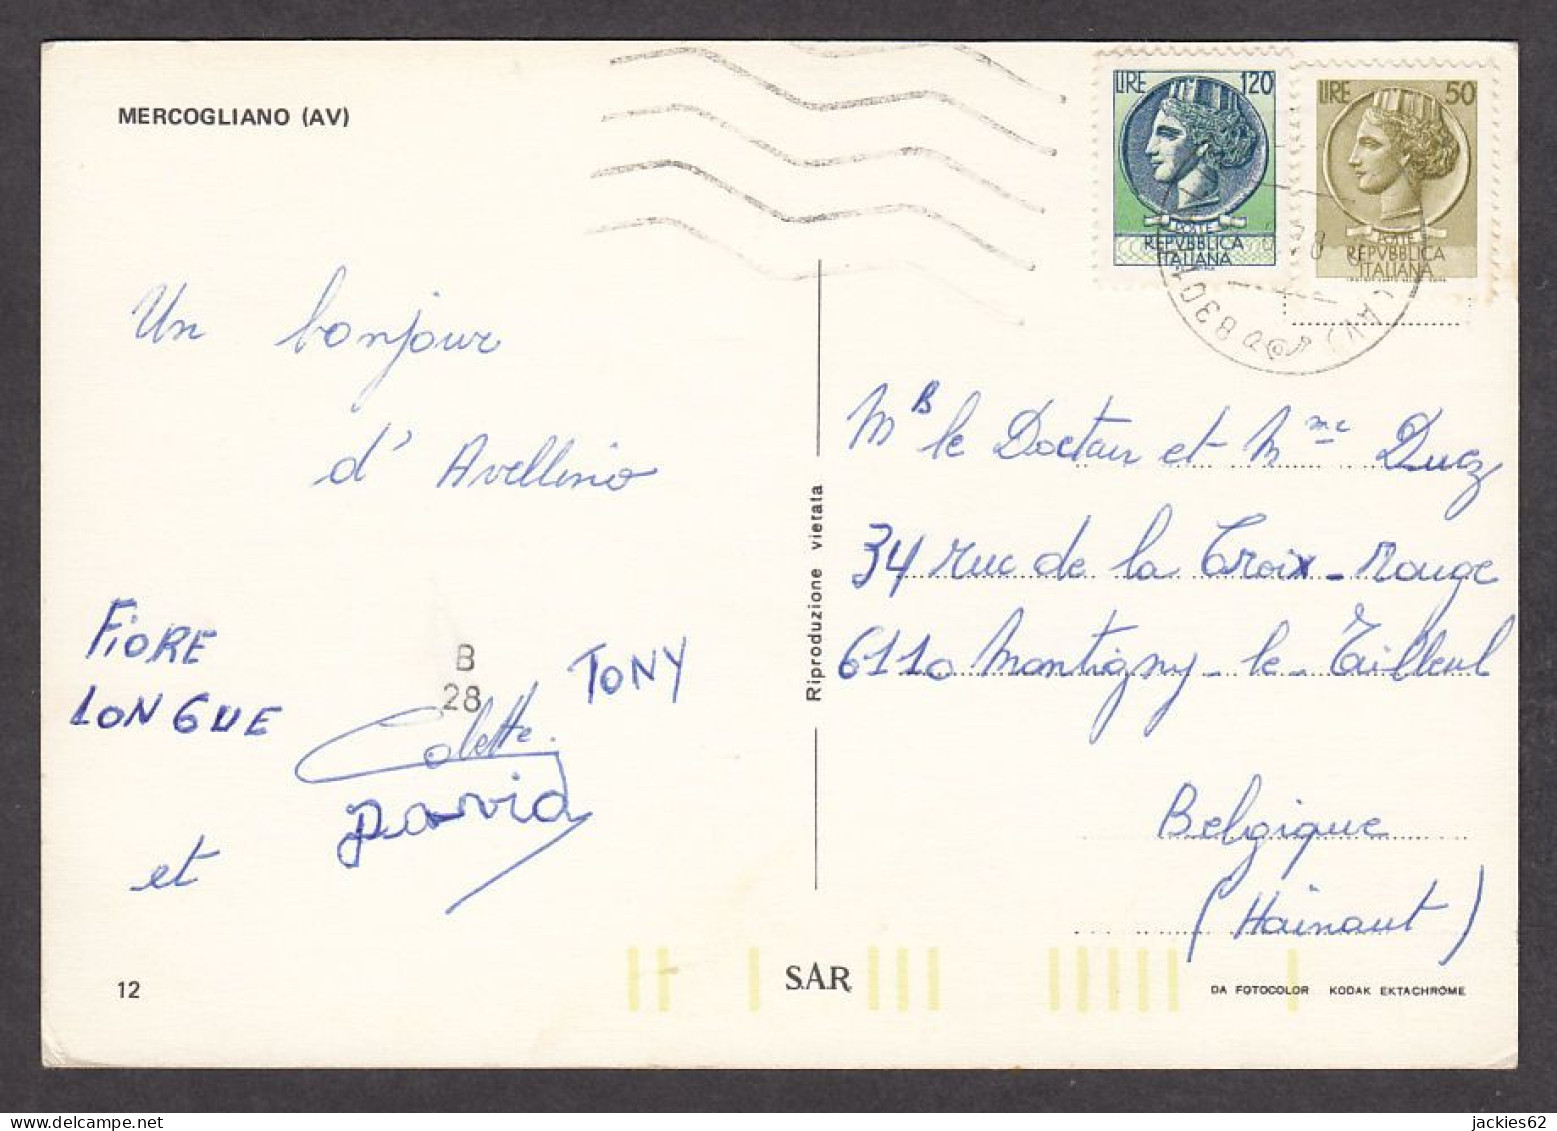 MERCOGLIANO (AV)
LIRE 120
POSTE
REPVBBLICA
ITALIANA
LIRE 50
POSTE
REPVBBLICA
ITALIANA
Un bonjour
d'Avellino
FIORE
LONGUE
B
28
TONY
Colette
et
David
12
Riproduzione vietata
S.A.R.
Mr le Docteur et Mme Ducz
34 rue de la Croix-rouge
6110 Montigny-le-Tilleul
Belgique
(Hainaut)
DA FOTOCOLOR KODAK EKTACHROME
jackies62